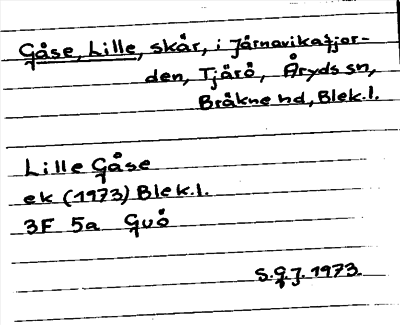 Gåse, Lille, skår, i Järnavikafjor-
den, Tjärö, Åryds sn,
Bräkne hd, Blek.l.
Lille Gåse
ek (1973) Blek.l.
3F 5a Guö
S.G.J. 1973